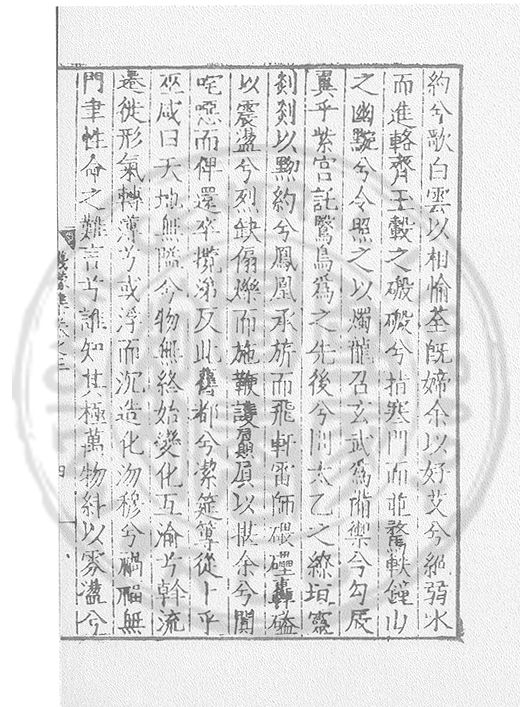 約兮歌白雲以相愉荃旣媂余以好艾兮絕弱水
而進輅齊玉轂之磤磤兮指寒門而並騖軼鐘山
之幽黥兮令照之以燭龍召玄武爲備禦兮勾辰
翼乎紫宮託鷖鳥爲之先後兮問太乙之繚垣靈
剡剡以黝約兮鳳凰承旂而飛軒雷師磈礧轟磕
以震盪兮烈缺傓爍而施鞭謖屭屓以㨊余兮闐
咤噁而俾還卒攬涕反此舊都兮潔筵篿從卜乎
巫咸曰天地無階兮物無終始變化互渝兮斡流
遷徙形氣轉薄兮或浮而沉造化沕穆兮禍福無
門聿性命之難言兮誰知其極萬物糾以雰盪兮
集卷之三
四